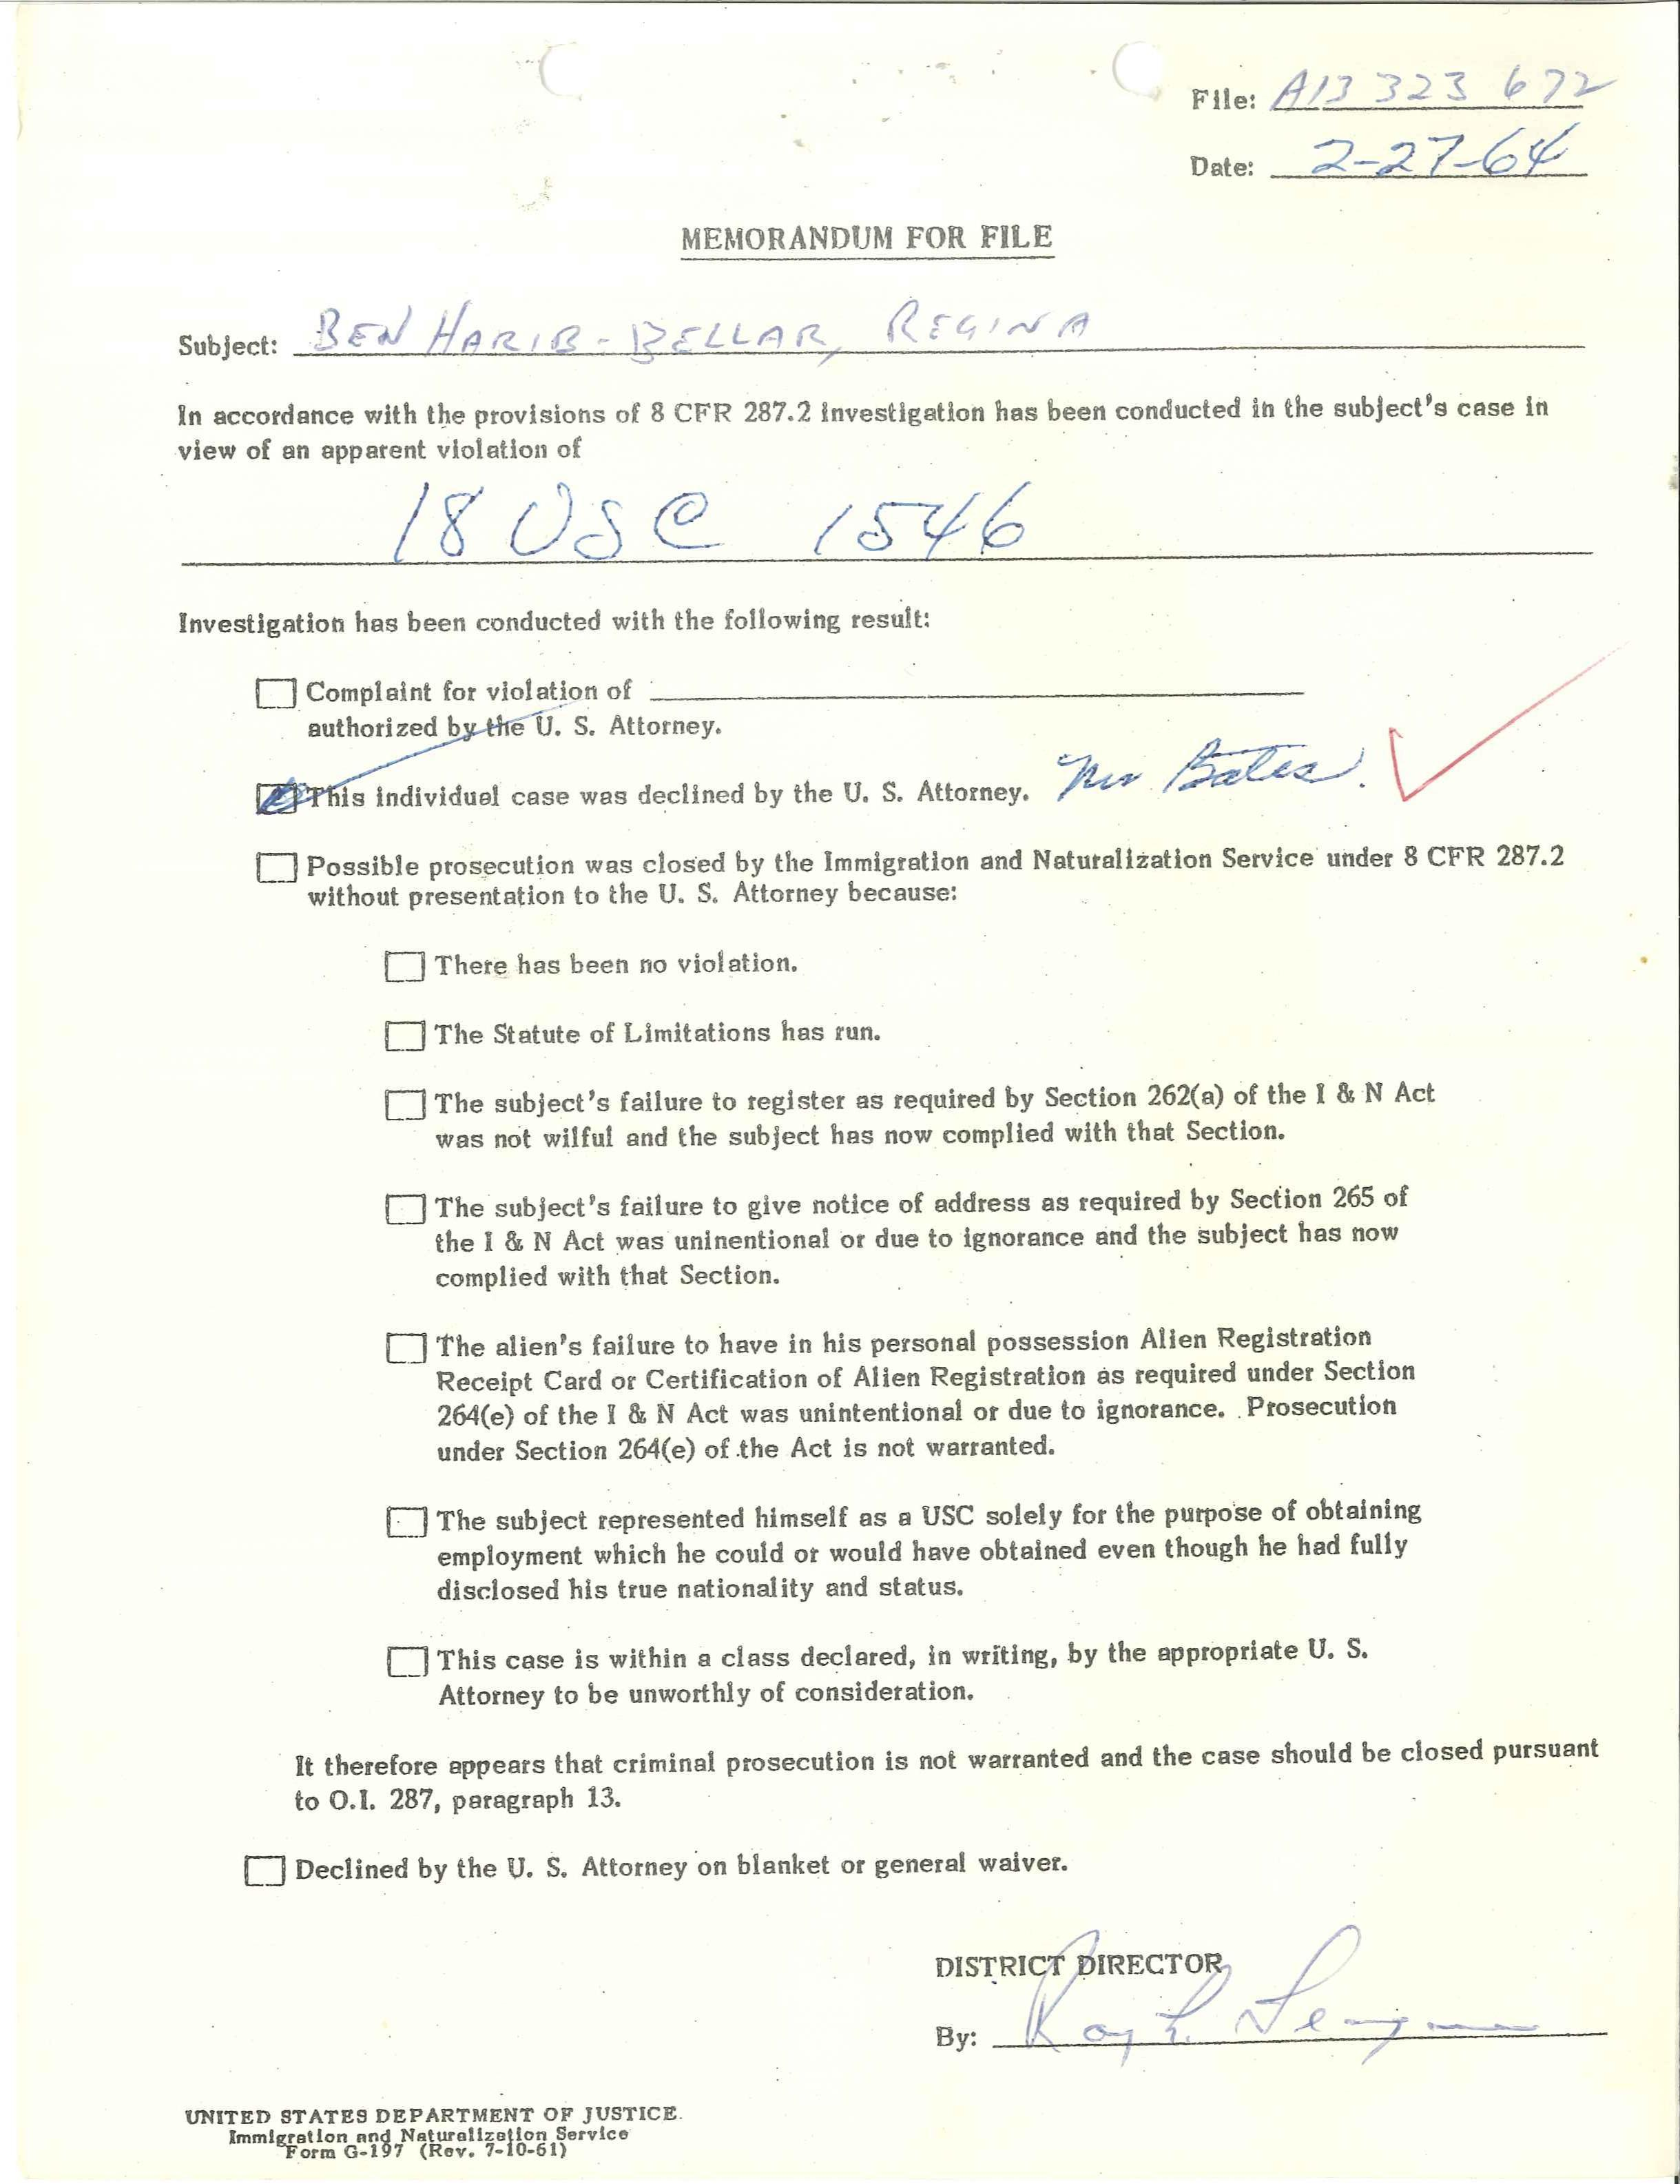 File: A13 323 672
Date: 2-27-64
MEMORANDUM FOR FILE
Subject: BEN HARIB-BELLAR, REGINA
In accordance with the provisions of 8 CFR 287.2 investigation has been conducted in the subject's case in
view of an apparent violation of
18 USC 1546
Investigation has been conducted with the following result:
Complaint for violation of
authorized by the U. S. Attorney.
This individual case was declined by the U. S. Attorney. Mr Bates.
Possible prosecution was closed by the Immigration and Naturalization Service under 8 CFR 287.2
without presentation to the U. S. Attorney because:
There has been no violation.
The Statute of Limitations has run.
The subject's failure to register as required by Section 262(a) of the I & N Act
was not wilful and the subject has now complied with that Section.
The subject's failure to give notice of address as required by Section 265 of
the I & N Act was uninentional or due to ignorance and the subject has now
complied with that Section.
The alien's failure to have in his personal possession Alien Registration
Receipt Card or Certification of Alien Registration as required under Section
264(e) of the I & N Act was unintentional or due to ignorance. Prosecution
under Section 264(e) of the Act is not warranted.
The subject represented himself as a USC solely for the purpose of obtaining
employment which he could or would have obtained even though he had fully
disclosed his true nationality and status.
This case is within a class declared, in writing, by the appropriate U. S.
Attorney to be unworthly of consideration.
It therefore appears that criminal prosecution is not warranted and the case should be closed pursuant
to O.I. 287, paragraph 13.
Declined by the U. S. Attorney on blanket or general waiver.
DISTRICT DIRECTOR
By: Roy L.
UNITED STATES DEPARTMENT OF JUSTICE
Immigration and Naturalization Service
Form G-197 (Rev. 7-10-61)